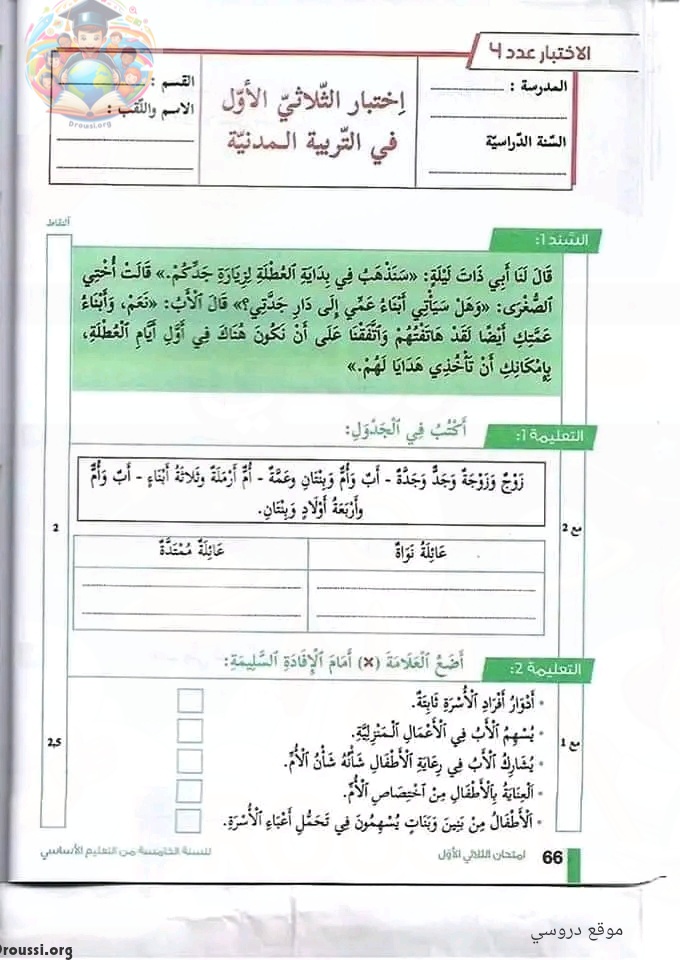 الاختبار عدد 4
المدرسة :
السّنة الدّراسيّة
اِختبار الثّلاثيّ الأوّل
في التّربية الـمدنيّة
القسم :
الاسم واللّقب :
Droussi.org
النقاط
السّند 1:
قَالَ لَنَا أَبِي ذَاتَ لَيْلَةٍ: «سَنَذْهَبُ فِي بِدَايَةِ ٱلعُطْلَةِ لِزِيَارَةِ جَدِّكُمْ.» قَالَتْ أُخْتِي
ٱلصُّغْرَى: «وَهَلْ سَيَأْتِي أَبْنَاءُ عَمِّي إِلَى دَارِ جَدَّتِي؟» قَالَ ٱلْأَبُ: «نَعَمْ، وَأَبْنَاءُ
عَمَّتِكِ أَيْضًا لَقَدْ هَاتَفْتُهُمْ وَٱتَّفَقْنَا عَلَى أَنْ نَكُونَ هُنَاكَ فِي أَوَّلِ أَيَّامِ ٱلْعُطْلَةِ،
بِإِمْكَانِكِ أَنْ تَأْخُذِي هَدَايَا لَهُمْ.»
التعليمة 1:
أَكْتُبُ فِي ٱلْجَدْوَلِ:
زَوْجٌ وَزَوْجَةٌ وَجَدٌّ وَجَدَّةٌ - أَبٌ وَأُمٌّ وَبِنْتَانِ وعَمَّةٌ - أُمٌّ أَرْمَلَةٌ وثَلاثَةُ أَبْنَاءٍ - أَبٌ وَأُمٌّ
وأَرْبَعَةُ أَوْلَادٍ وَبِنْتَانِ.
مع 2
2
عَائِلَةٌ نَوَاةٌ
عَائِلَةٌ مُمْتَدَّةٌ
التعليمة 2:
أَضَعُ ٱلْعَلَامَةَ (×) أَمَامَ ٱلْإِفَادَةِ ٱلسَّلِيمَةِ:
• أَدْوَارُ أَفْرَادِ ٱلْأُسْرَةِ ثَابِتَةٌ.
• يُسْهِمُ ٱلْأَبُ فِي ٱلْأَعْمَالِ ٱلْـمَنْزِلِيَّةِ.
• يُشَارِكُ ٱلْأَبُ فِي رِعَايَةِ ٱلْأَطْفَالِ شَأْنُهُ شَأْنُ ٱلْأُمِّ.
• ٱلْعِنَايَةُ بِٱلْأَطْفَالِ مِنْ ٱخْتِصَاصِ ٱلْأُمِّ.
• ٱلْأَطْفَالُ مِنْ بَنِينَ وَبَنَاتٍ يُسْهِمُونَ فِي تَحَمُّلِ أَعْبَاءِ ٱلْأُسْرَةِ.
مع 1
2,5
66
امتحان الثلاثي الأوّل
للسنة الخامسة من التعليم الأساسي
موقع دروسي
Droussi.org